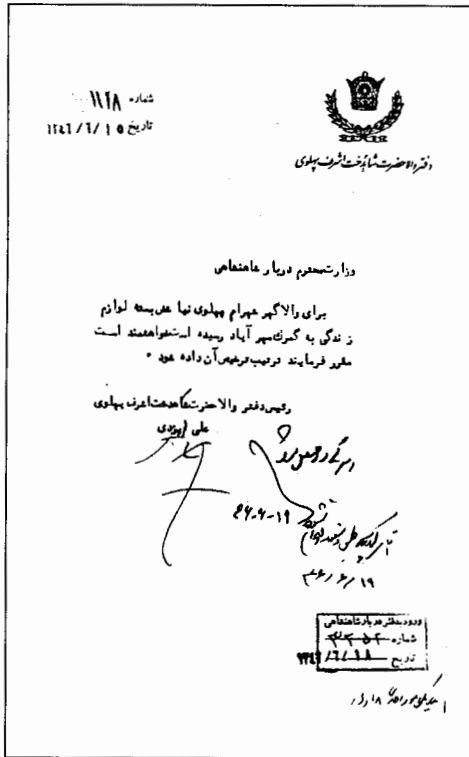 دفتر والاحضرت شاهدخت اشرف پهلوی
شماره ۱۱۲۸
تاریخ ۱۳۴۶/۶/۱۵
وزارت محترم دربار شاهنشاهی
برای والاگهر شهرام پهلوی نیا شش بسته لوازم
زندگی به گمرک مهر آباد رسیده است خواهشمند است
مقرر فرمایند ترتیب ترخیص آن داده شود ۰
رئیس دفتر والاحضرت شاهدخت اشرف پهلوی
علی ایزدی
۴۶-۶-۱۹
۴۶/۶/۱۹
ورود بدفتر دربار شاهنشاهی
شماره
تاریخ ۱۳۴۶/۶/۱۸